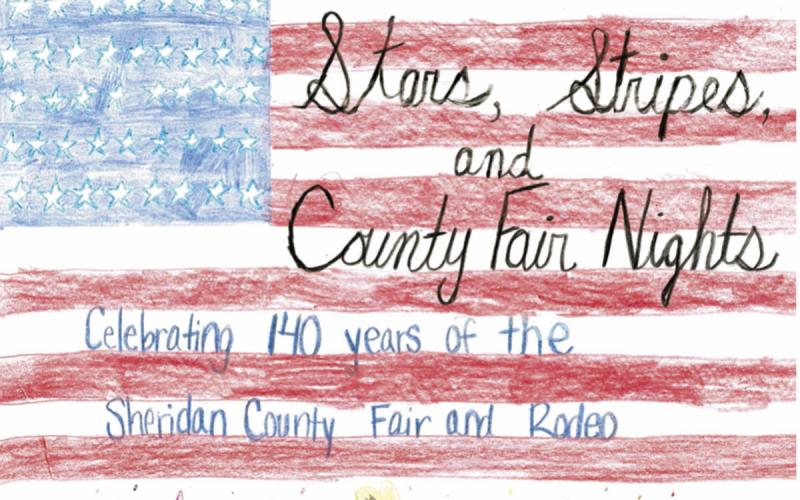 Stars, Stripes,
and
County Fair Nights
Celebrating 140 years of the
Sheridan County Fair and Rodeo